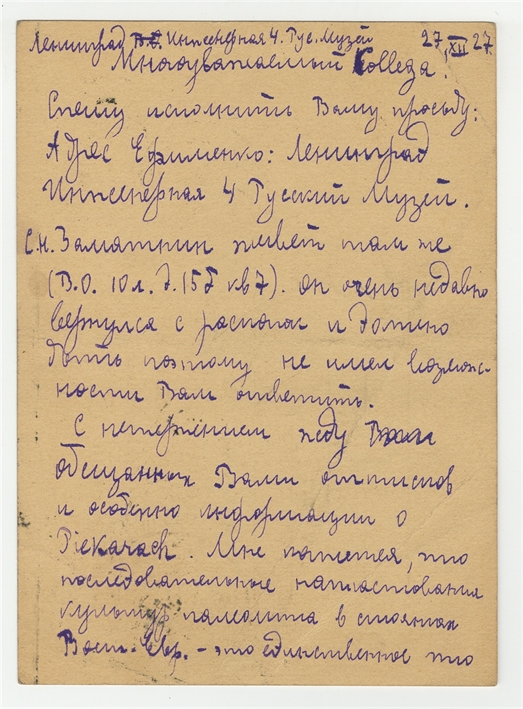 Ленинград В.О. Инженерная 4. Рус. Музей 27 XII 27.
Многоуважаемый Collega.
Спешу исполнить Вашу просьбу:
Адрес Ефименко: Ленинград
Инженерная 4 Русский Музей.
С.Н. Замятнин живет там же
(В.О. 10 л. д. 15б кв 7). он очень недавно
вернулся с раскопок и должно
быть поэтому не имел возмож-
ности Вам ответить.
С нетерпением жду
обещанных Вами оттисков
и особенно информации о
Piekarach. Мне кажется, что
последовательные напластования
культур палеолита в стоянках
Вост. Евр. - это единственное что